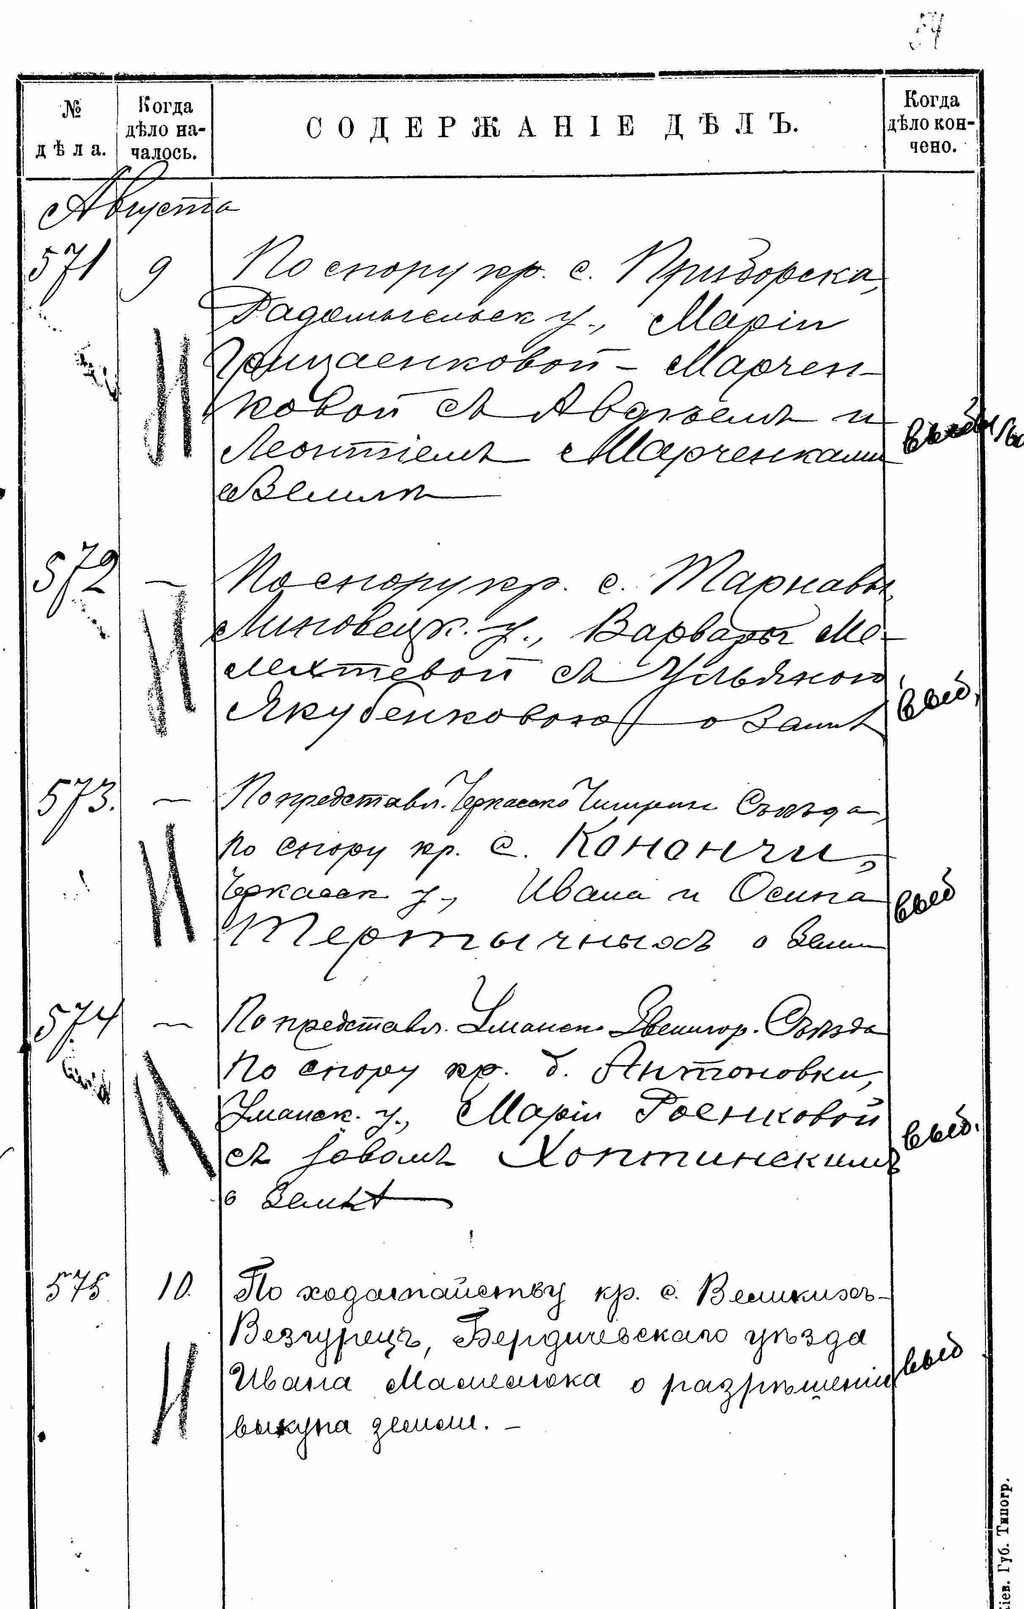 54
№ дѣла.
Когда дѣло началось.
СОДЕРЖАНІЕ ДѢЛЪ.
Когда дѣло кончено.
Августа
571 9 По спору кр. с. Приборска,
Радомысльск у., Маріи
Грицаенковой - Марчен-
ковой съ Авдѣемъ и
Леонтіемъ Марченками
о Землѣ
572 — По спору кр. с. Тарнавы,
Липовецк. у., Варвары Ме-
лехтевой съ Ульяною
Якубенковою о Землѣ
выб,
573. — По представл. Черкасско Чигирин Съѣзда,
по спору кр. с. Конончи,
Черкасск у., Ивана и Осипа
Тертычныхъ о Земл
выб
574 — По представл. Уманск. Звенигор. Съѣзда
по спору кр. д. Антоновки,
Уманск. у., Маріи Роенковой
съ Іовомъ Хоптинскимъ
о Землѣ
выб.
575 10. По ходатайству кр. с. Великихъ-
Безгурецъ, Бердичевскаго уѣзда
Ивана о разрѣшеніи
выкупа земли. —
выб
Кіев. Губ. Типогр.